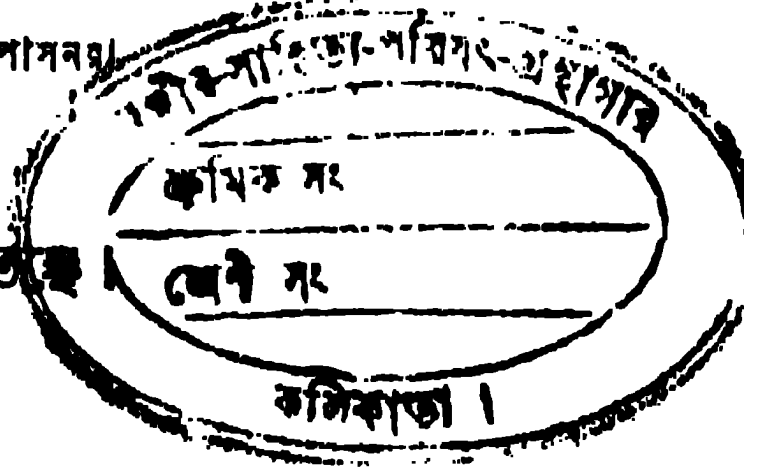 পাসনর।
বঙ্গীয়-সাহিত্য-পরিষৎ-গ্রন্থাগার
ক্রমিক সং
শ্রেণী সং
কলিকাতা ।